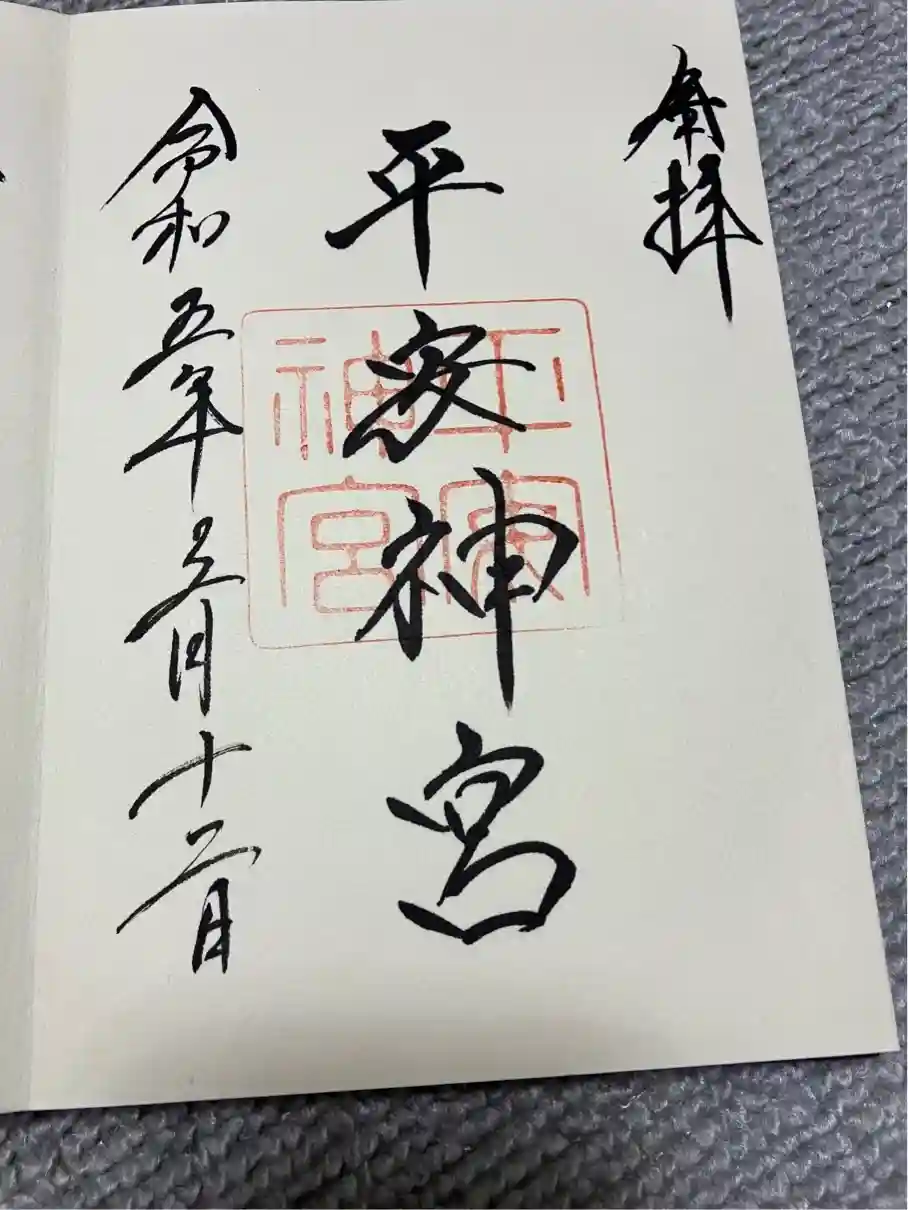 奉拝
平安神宮
平安神宮
令和五年五月十二日